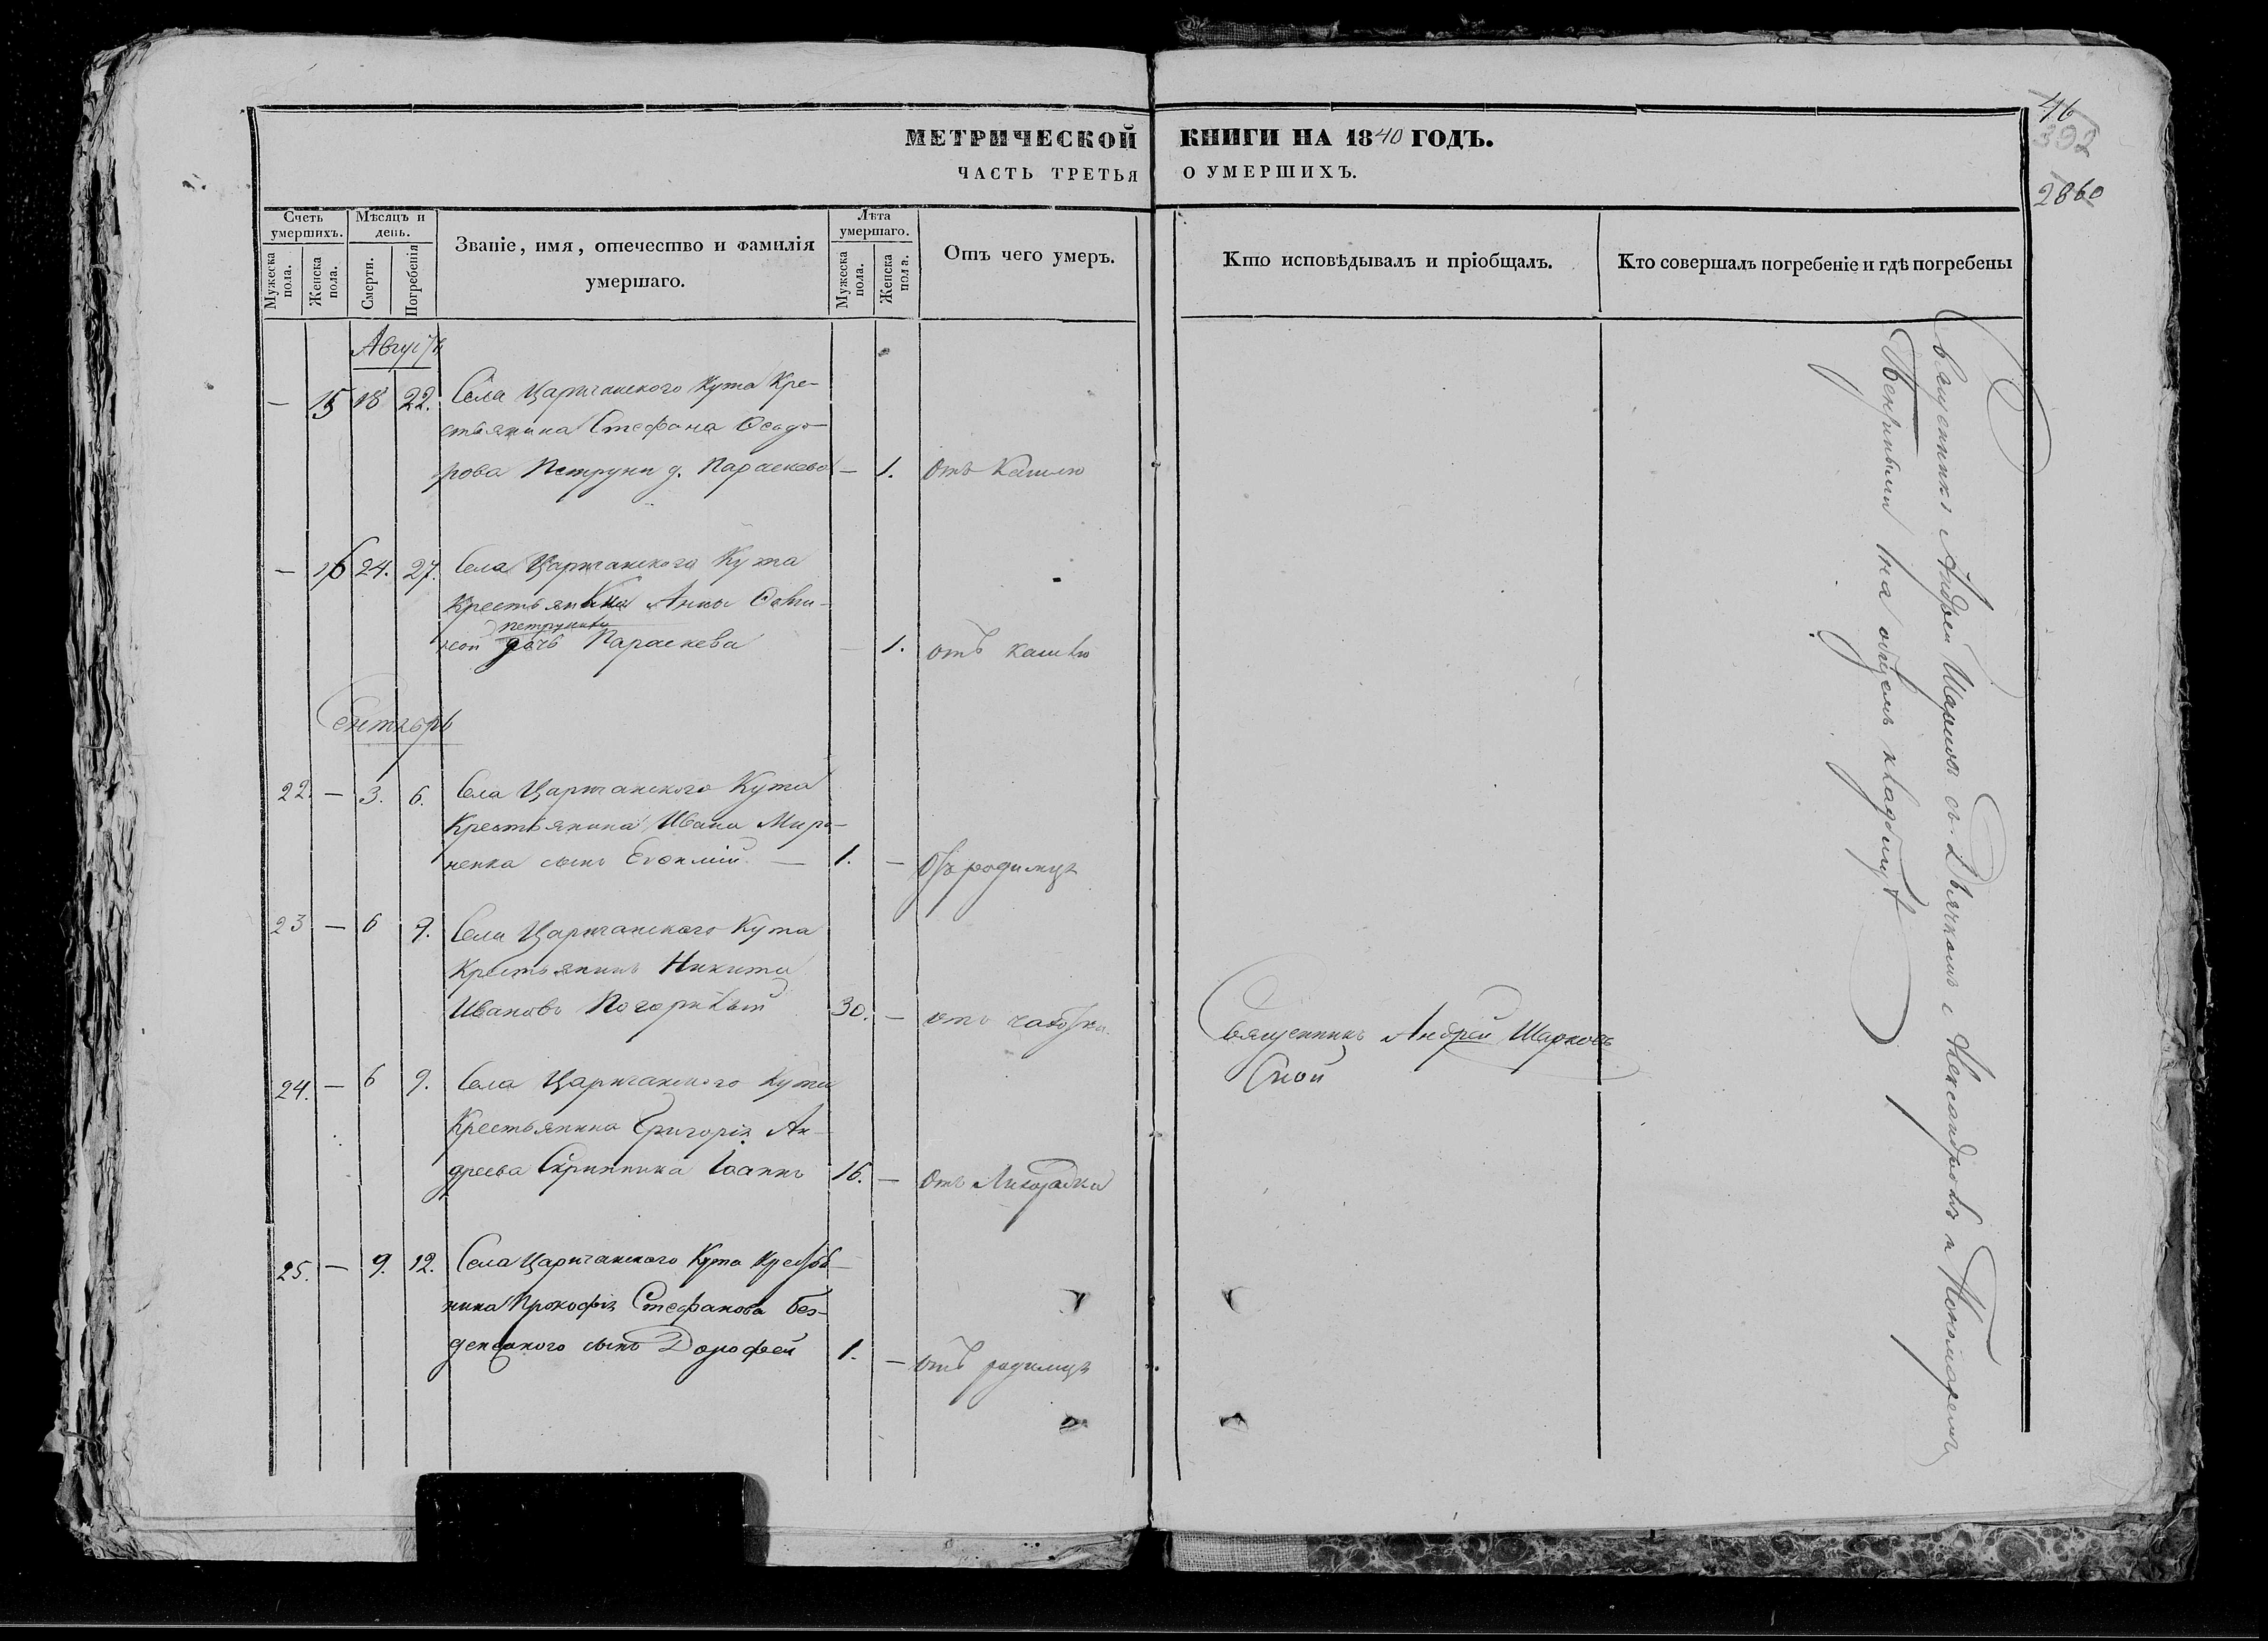 МЕТРИЧЕСКОЙ КНИГИ НА 1840 ГОДЪ.
ЧАСТЬ ТРЕТЬЯ О УМЕРШИХЪ.
46
392
2860
Счетъ умершихъ.
Мужеска пола.
Женска пола.
Мѣсяцъ и день.
Смерти.
Погребенія
Званіе, имя, отечество и фамилія
умершаго.
Лѣта умершаго.
Мужеска пола.
Женска пола.
Отъ чего умеръ.
Кто исповѣдывалъ и пріобщалъ.
Кто совершалъ погребеніе и гдѣ погребены
Августъ
— 15 18 22. Села Царичанского Кута Кре-
стьянина Стефана Ѳеодо-
рова Петруни д. Параскева — 1. Отъ Кашлю
— 16 24. 27. Села Царичанского Кута
Крестьянки Анны
Петруневи
дочь Параскева — 1. отъ кашлю
Сентябрь
22. — 3. 6. Села Царичанского Кута
Крестьянина Ивана Миро-
ненка сынъ Евѳимій — 1. — Отъ родимца
23 — 6 9. Села Царичанского Кута
Крестьянинъ Никита
Ивановъ Погорѣлый 30. — отъ чахотки.
24. — 6 9. Села Царичанского Кута
Крестьянина Григорія Ан-
дреева Скрипника Іоаннъ 16. — Отъ Лихорадки
25. — 9. 12. Села Царичанского Кута Крестья-
нина Прокофія Стефанова без-
сынъ Дорофей 1. — отъ родимца
Священникъ Андрей Шарков
Ской
Священникъ Андрей съ Дьячкомъ Александровымъ и Пономаремъ
на общемъ кладбищѣ